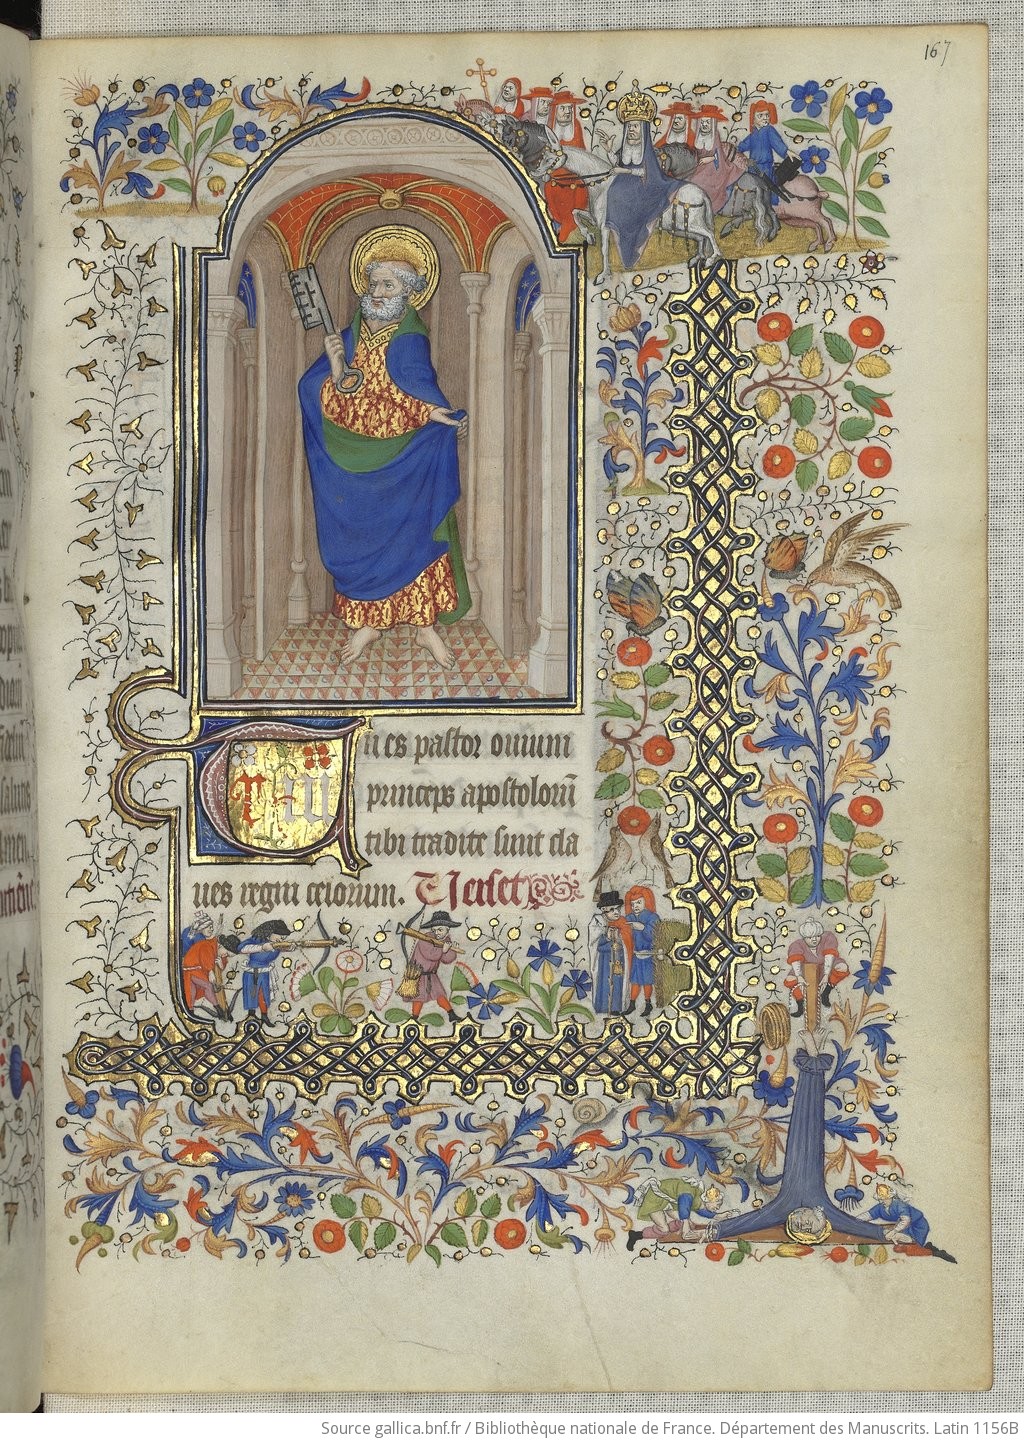 167
Tu es pastor ouium
princeps apostoloru̅
tibi tradite sunt cla
ues regni celorum. Verset
Source gallica.bnf.fr / Bibliothèque nationale de France. Département des Manuscrits. Latin 1156B